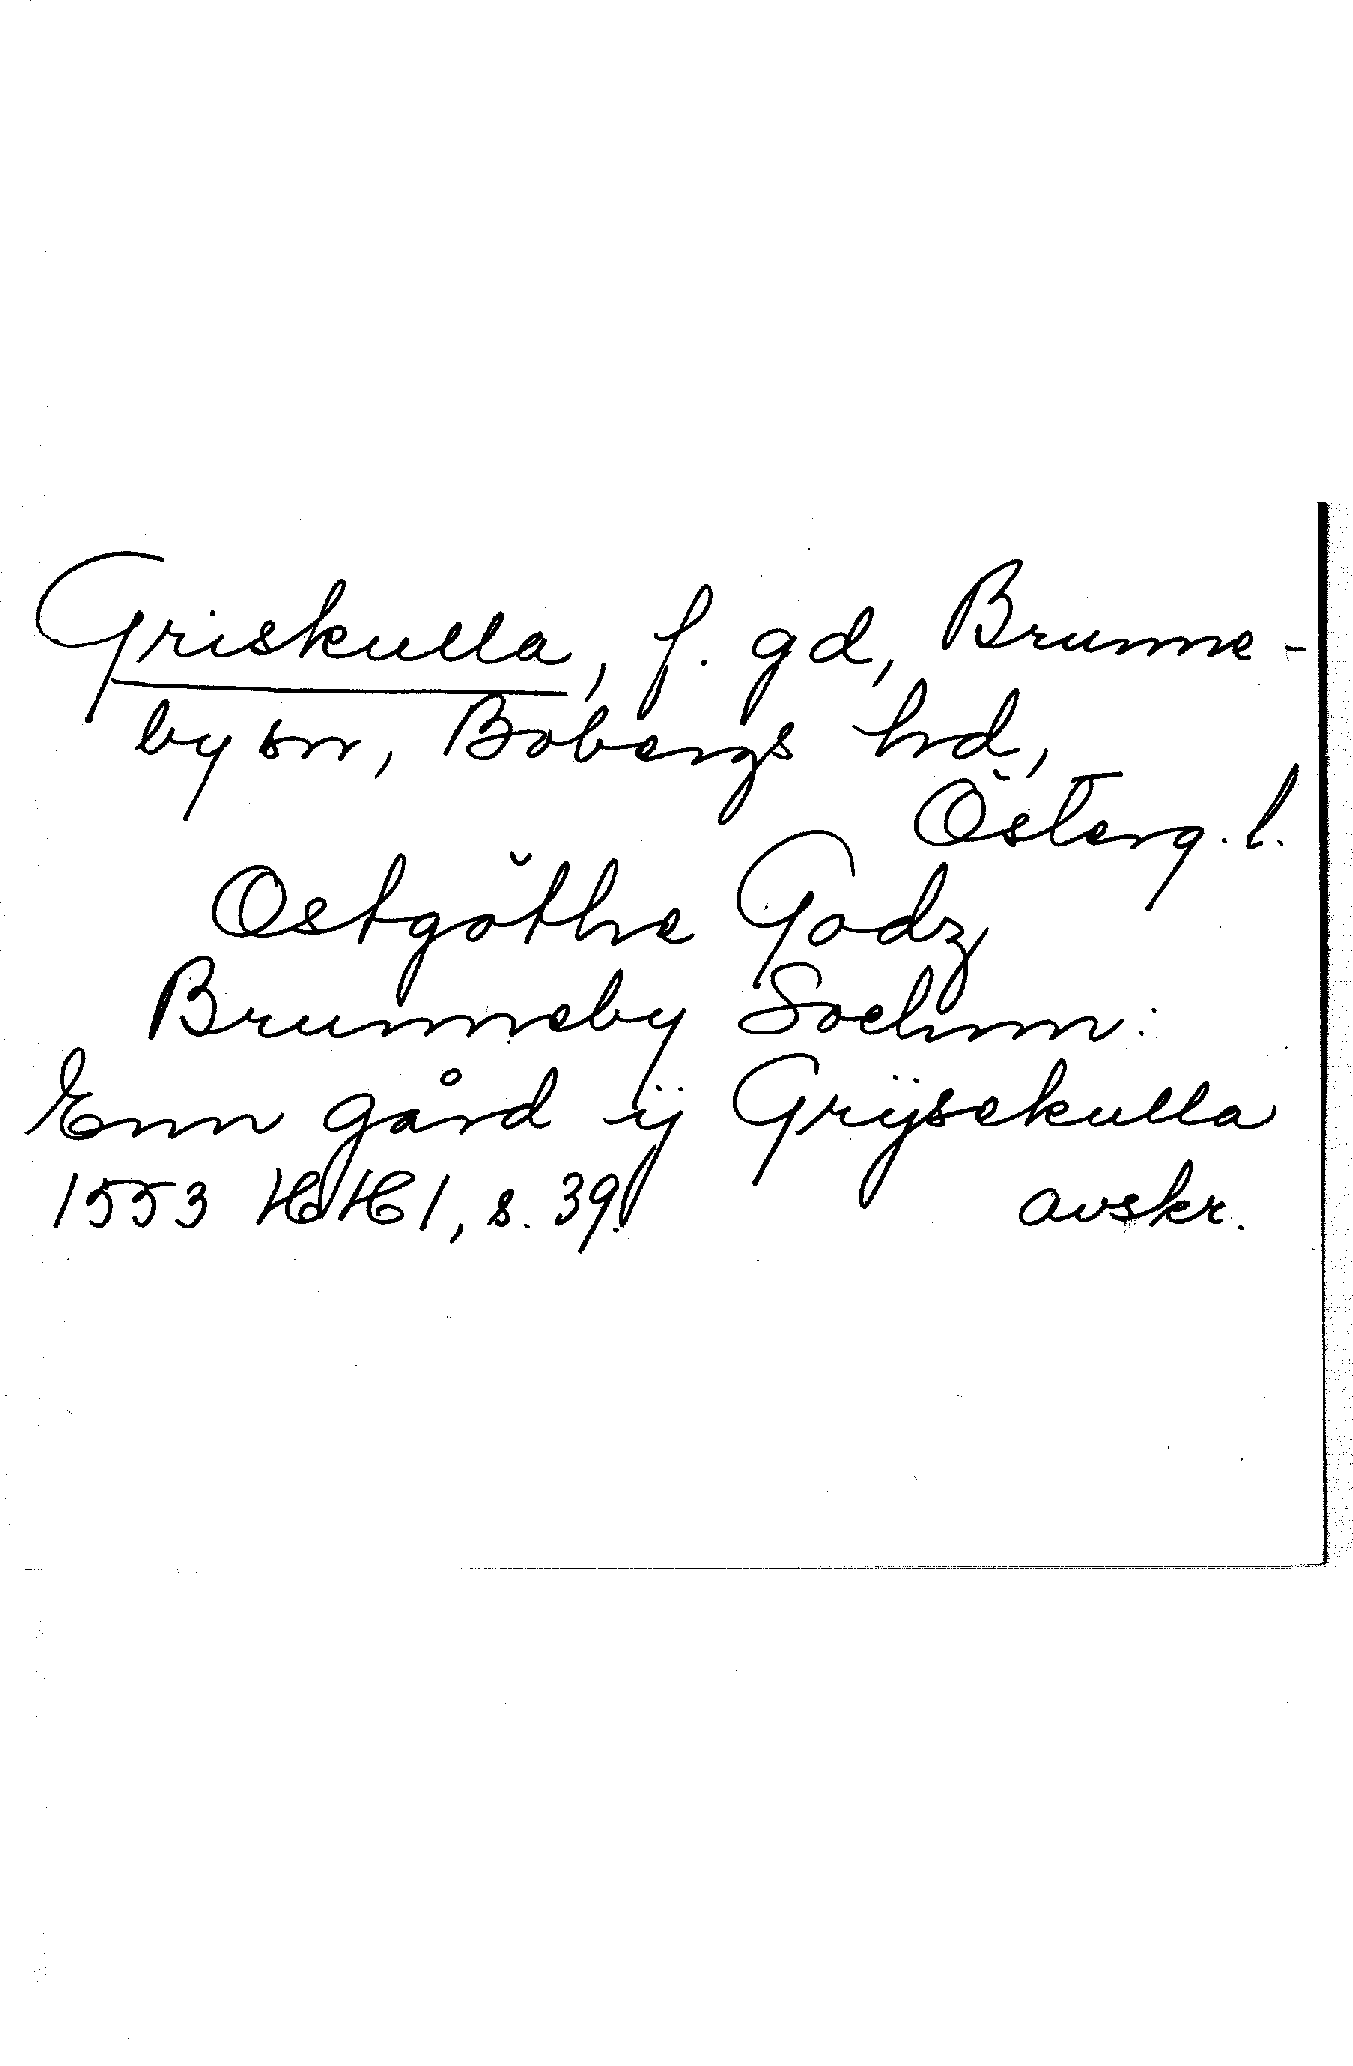 Griskulla, f. gd, Brunne-
by sn, Bobergs hd,
Österg. l.
Ostgöthe Godz
Brunneby Sochnn:
Enn gård ij Grijsekulla
1553 HH 1, s. 39. avskr.